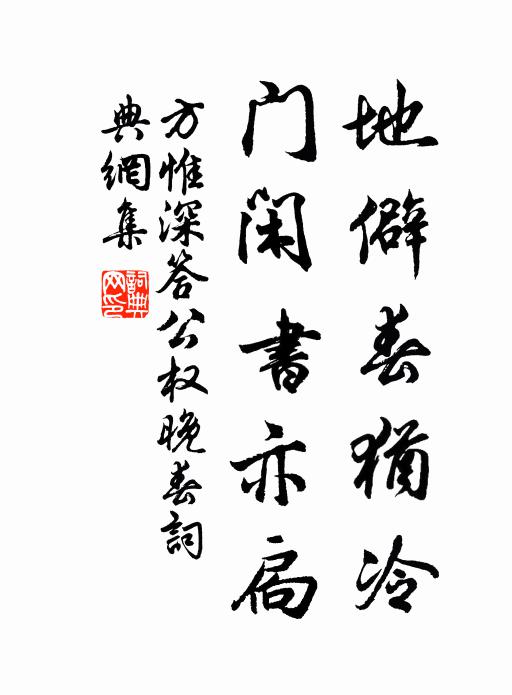 地僻春犹冷
门闲書亦扃
方惟深答公权晚春詞
典網集
詞典網印